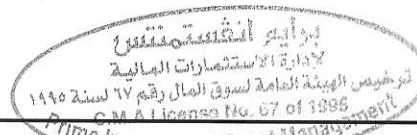 برايم انفستمنتس
لإدارة الاستثمارات المالية
ترخيص الهيئة العامة لسوق المال رقم ٦٧ لسنة ١٩٩٥
C.M.A License No. 67 of 1995
Prime Management